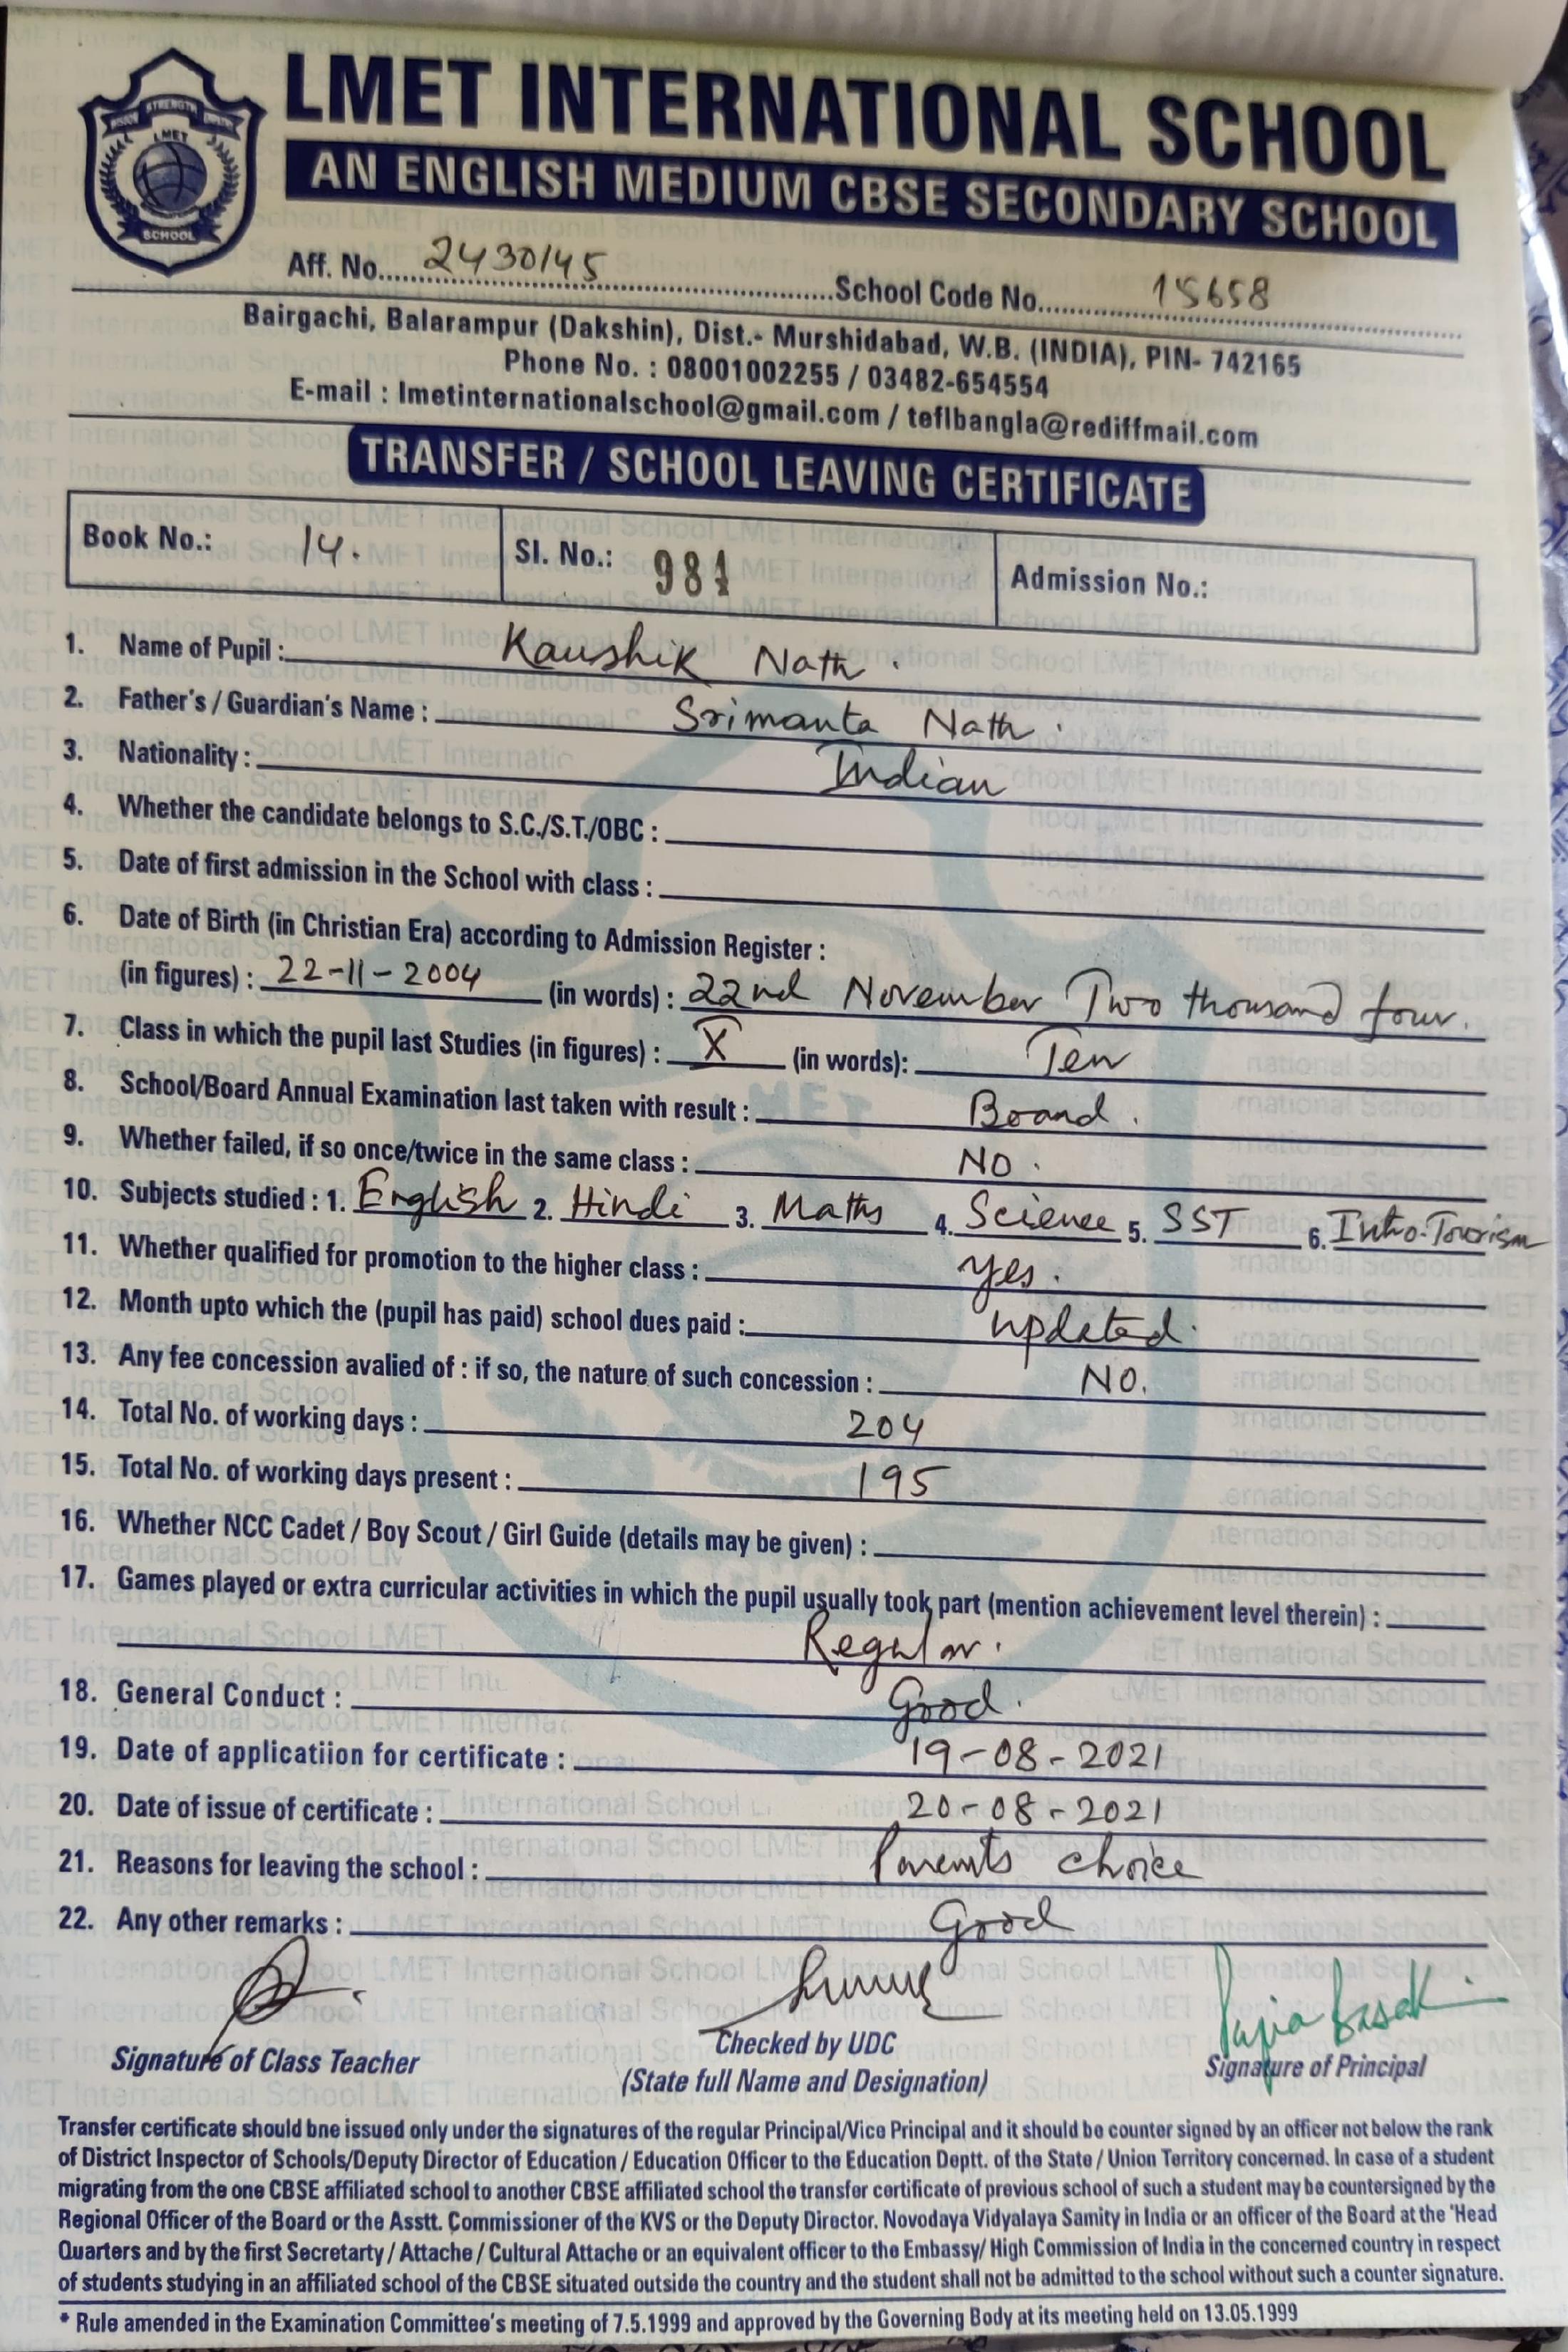 LMET INTERNATIONAL SCHOOL
AN ENGLISH MEDIUM CBSE SECONDARY SCHOOL
STRENGTH
LMET
SCHOOL
Aff. No. 2430145 School Code No. 15658
Bairgachi, Balarampur (Dakshin), Dist.- Murshidabad, W.B. (INDIA), PIN- 742165
Phone No. : 08001002255 / 03482-654554
E-mail : lmetinternationalschool@gmail.com / teflbangla@rediffmail.com
TRANSFER / SCHOOL LEAVING CERTIFICATE
Book No.: 14. Sl. No.: 981 Admission No.:
1. Name of Pupil : Kaushik Nath.
2. Father's / Guardian's Name : Srimanta Nath.
3. Nationality : Indian
4. Whether the candidate belongs to S.C./S.T./OBC :
5. Date of first admission in the School with class :
6. Date of Birth (in Christian Era) according to Admission Register :
(in figures) : 22-11-2004 (in words) : 22nd November Two thousand four.
7. Class in which the pupil last Studies (in figures) : X (in words): Ten
8. School/Board Annual Examination last taken with result : Board.
9. Whether failed, if so once/twice in the same class : NO.
10. Subjects studied : 1. English 2. Hindi 3. Maths 4. Science 5. SST 6. Intro-Tourism
11. Whether qualified for promotion to the higher class : yes.
12. Month upto which the (pupil has paid) school dues paid : updated.
13. Any fee concession avalied of : if so, the nature of such concession : NO.
14. Total No. of working days : 204
15. Total No. of working days present : 195
16. Whether NCC Cadet / Boy Scout / Girl Guide (details may be given) :
17. Games played or extra curricular activities in which the pupil usually took part (mention achievement level therein) :
Regular.
18. General Conduct : Good.
19. Date of applicatiion for certificate : 19-08-2021
20. Date of issue of certificate : 20-08-2021
21. Reasons for leaving the school : Parents choice
22. Any other remarks : Good
Papia Basak
Signature of Class Teacher Checked by UDC Signature of Principal
(State full Name and Designation)
Transfer certificate should bne issued only under the signatures of the regular Principal/Vice Principal and it should be counter signed by an officer not below the rank
of District Inspector of Schools/Deputy Director of Education / Education Officer to the Education Deptt. of the State / Union Territory concerned. In case of a student
migrating from the one CBSE affiliated school to another CBSE affiliated school the transfer certificate of previous school of such a student may be countersigned by the
Regional Officer of the Board or the Asstt. Commissioner of the KVS or the Deputy Director. Novodaya Vidyalaya Samity in India or an officer of the Board at the 'Head
Quarters and by the first Secretarty / Attache / Cultural Attache or an equivalent officer to the Embassy/ High Commission of India in the concerned country in respect
of students studying in an affiliated school of the CBSE situated outside the country and the student shall not be admitted to the school without such a counter signature.
* Rule amended in the Examination Committee's meeting of 7.5.1999 and approved by the Governing Body at its meeting held on 13.05.1999